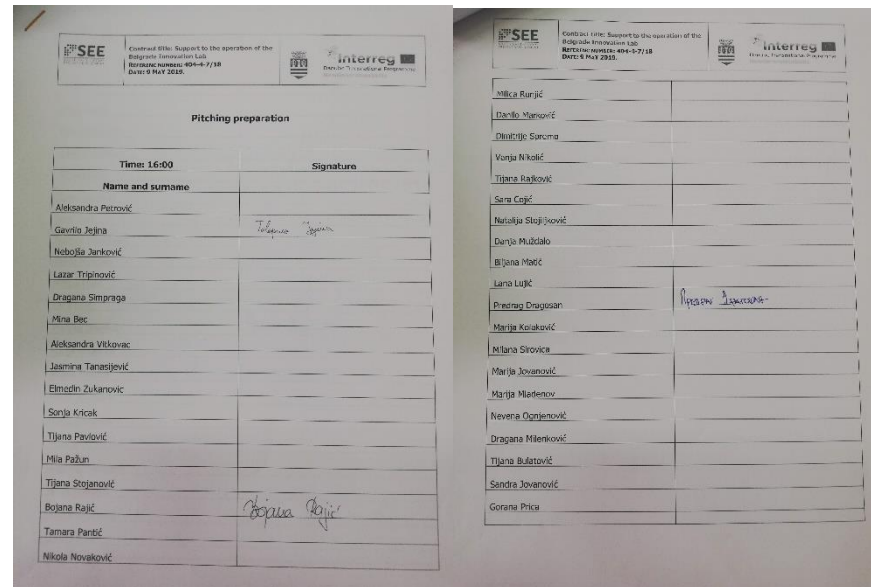 SEE
Contract title: Support to the operation of the
Belgrade Innovation Lab
REFERENC NUMBER: 404-4-7/18
DATE: 9 MAY 2019.
Interreg
Danube Transnational Programme
Pitching preparation
Time: 16:00 Signature
Name and surname
Aleksandra Petrović
Gavrilo Jejina
Nebojša Janković
Lazar Tripinović
Dragana Simpraga
Mina Bec
Aleksandra Vitkovac
Jasmina Tanasijević
Elmedin Zukanovic
Sonja Kricak
Tijana Pavlović
Mila Pažun
Tijana Stojanović
Bojana Rajić Bojana Rajić
Tamara Pantić
Nikola Novaković
SEE
Contract title: Support to the operation of the
Belgrade Innovation Lab
REFERENC NUMBER: 404-4-7/18
DATE: 9 MAY 2019.
Interreg
Milica Runjić
Danilo Marković
Dimitrije Sprema
Vanja Nikolić
Tijana Rajković
Sara Cojić
Natalija Stojiljković
Danja Muždalo
Biljana Matić
Lana Lujić
Predrag Dragosan
Marija Kolaković
Milana Sirovica
Marija Jovanović
Marija Mladenov
Nevena Ognjenović
Dragana Milenković
Tijana Bulatović
Sandra Jovanović
Gorana Prica